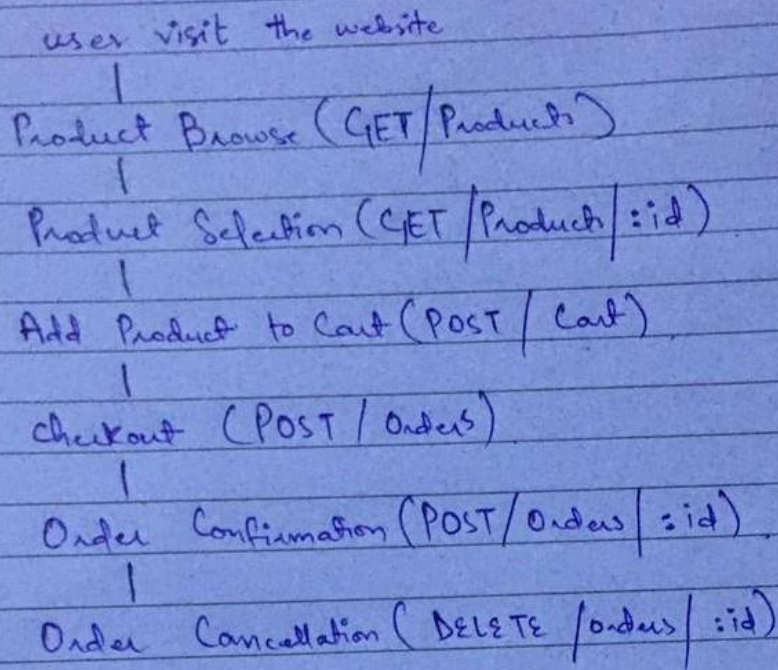 user visit the website
Product Browse (GET/Products)
Product Selection (GET/Products/:id)
Add Product to Cart (POST/Cart)
Checkout (POST/Orders)
Order Confirmation (POST/Orders/:id)
Order Cancellation (DELETE/orders/:id)